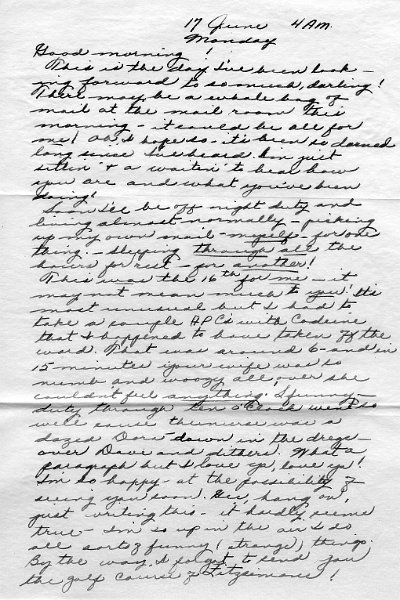 17 June 4 A.M.
Monday
Good morning!
This is the day I've been look-
ing forward to so much, darling!
There may be a whole bag of
mail at the mail room this
morning - it could be all for
me! Oh, I hope so - it's been so darned
long since I've heard. I'm just
sittin' & a waitin' to hear how
you are and what you've been
doing!
Soon I'll be off night duty and
living almost normally - picking
up my own mail - myself - for one
thing. - sleeping through all the
hours for rest - for another!
This was the 16th for me - it
may not mean much to you. It's
most unusual but I had to
take a couple APC's with Codeine
that I happened to have taken off the
ward. That was around 6 - and in
15 minutes your wife was so
numb and woozy all over she
couldn't feel anything.
duty through ten o'clock went so
well cause the nurse was a
dazed Dora down in the dregs -
over Dave and dithers. What a
paragraph but I love ya, love ya!
I'm so happy - at the possibility of
seeing you soon. Gee, hang on,
just writing this - it hardly seems
true - I'm so up in the air & so
all sorts of funny (strange) things.
By the way, I forgot to send you
the golf course of Fitzsimons!